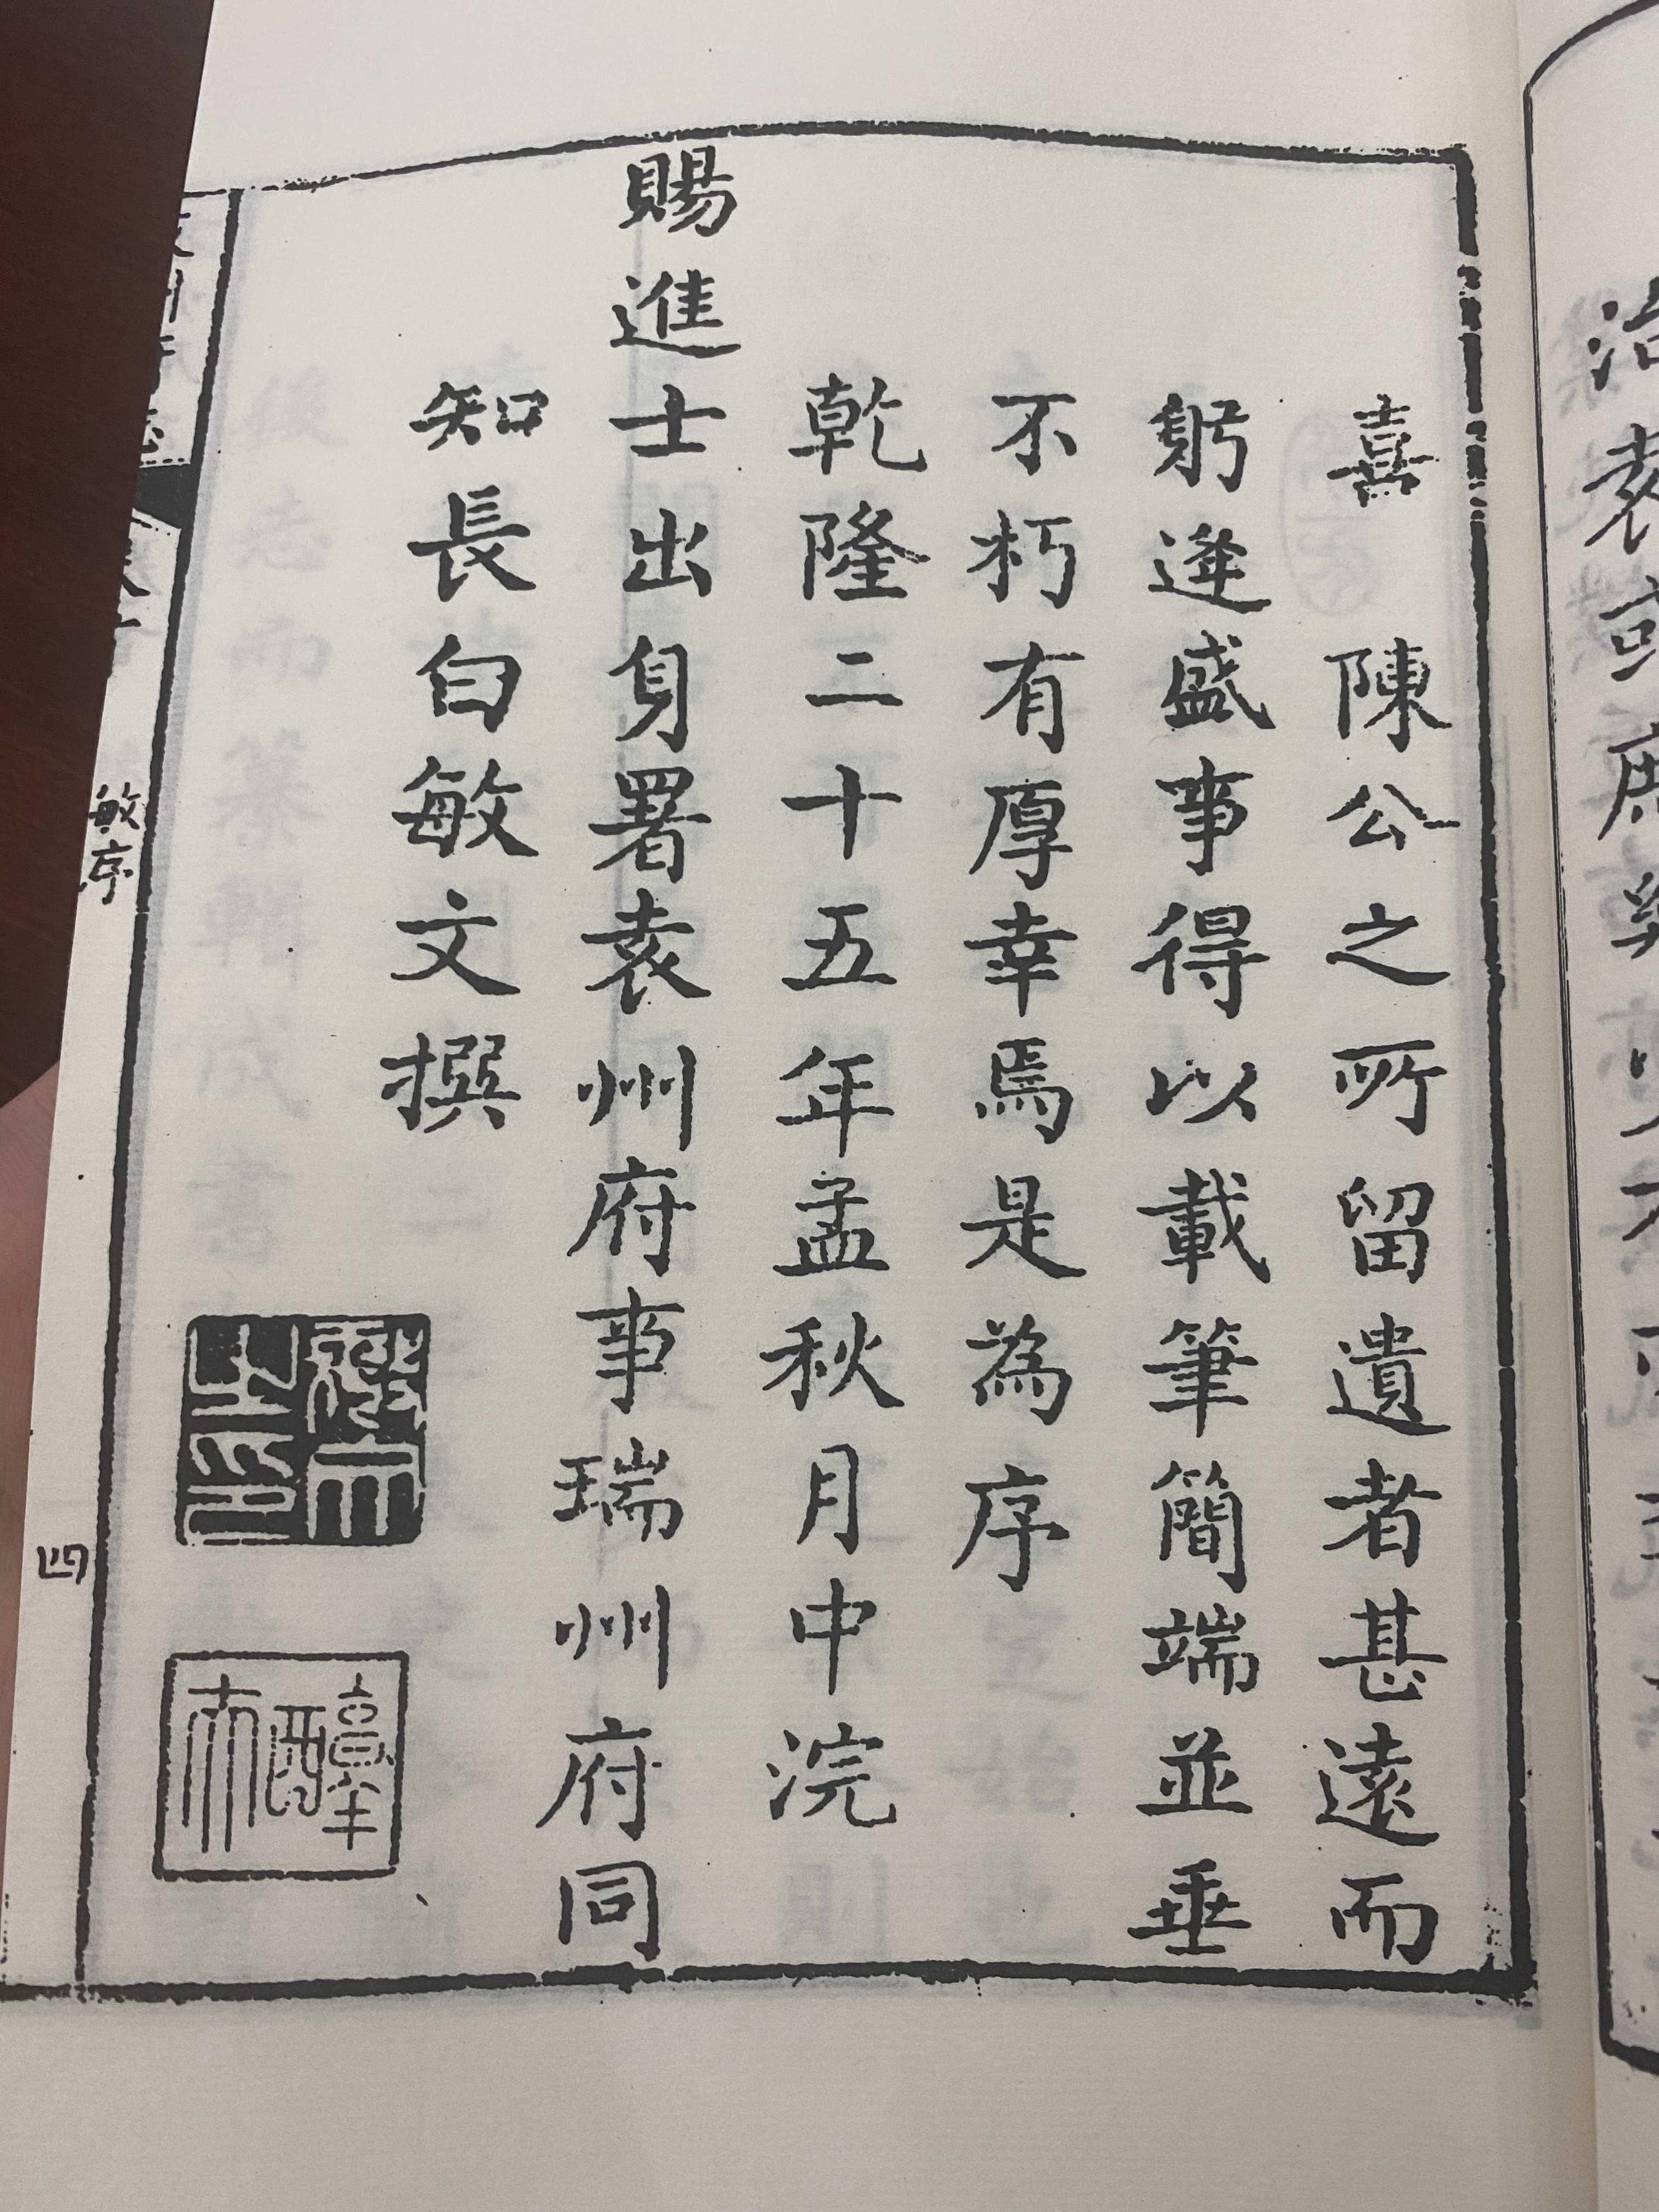 喜　陳公之所留遺者甚遠而
躬逢盛事得以載筆簡端並垂
不朽有厚幸焉是為序
乾隆二十五年孟秋月中浣
賜進士出身署袁州府事瑞州府同
知長白敏文撰
敏序
四